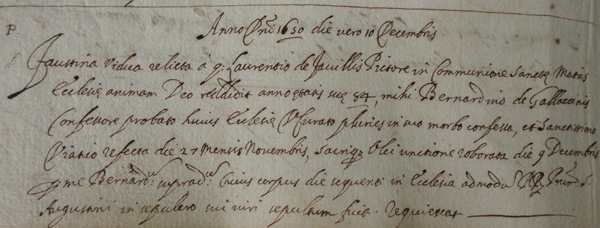 P
Anno Dni 1650 die vero 10 Decembris
Faustina vidua relicta a q: Laurentio de Pictore in Communione Sanctę Matris
Ecclesię animam Deo reddidit anno ętatis suę 54, mihi Bernardino de Gallaccinis
Confessore probato huius Ecclesię Curato pluries in suo morbo confessa, et Sanctissimo
Viatico refecta die 27 Mensis Novembris, sacriq; Olei unctione roborata die 9 Decembris
p me Bernard. suprad. Cuius corpus die sequenti in Ecclesia admodu RR. Patrum S.
Augustini in sepulcro sui viri sepultum fuit. Requiescat